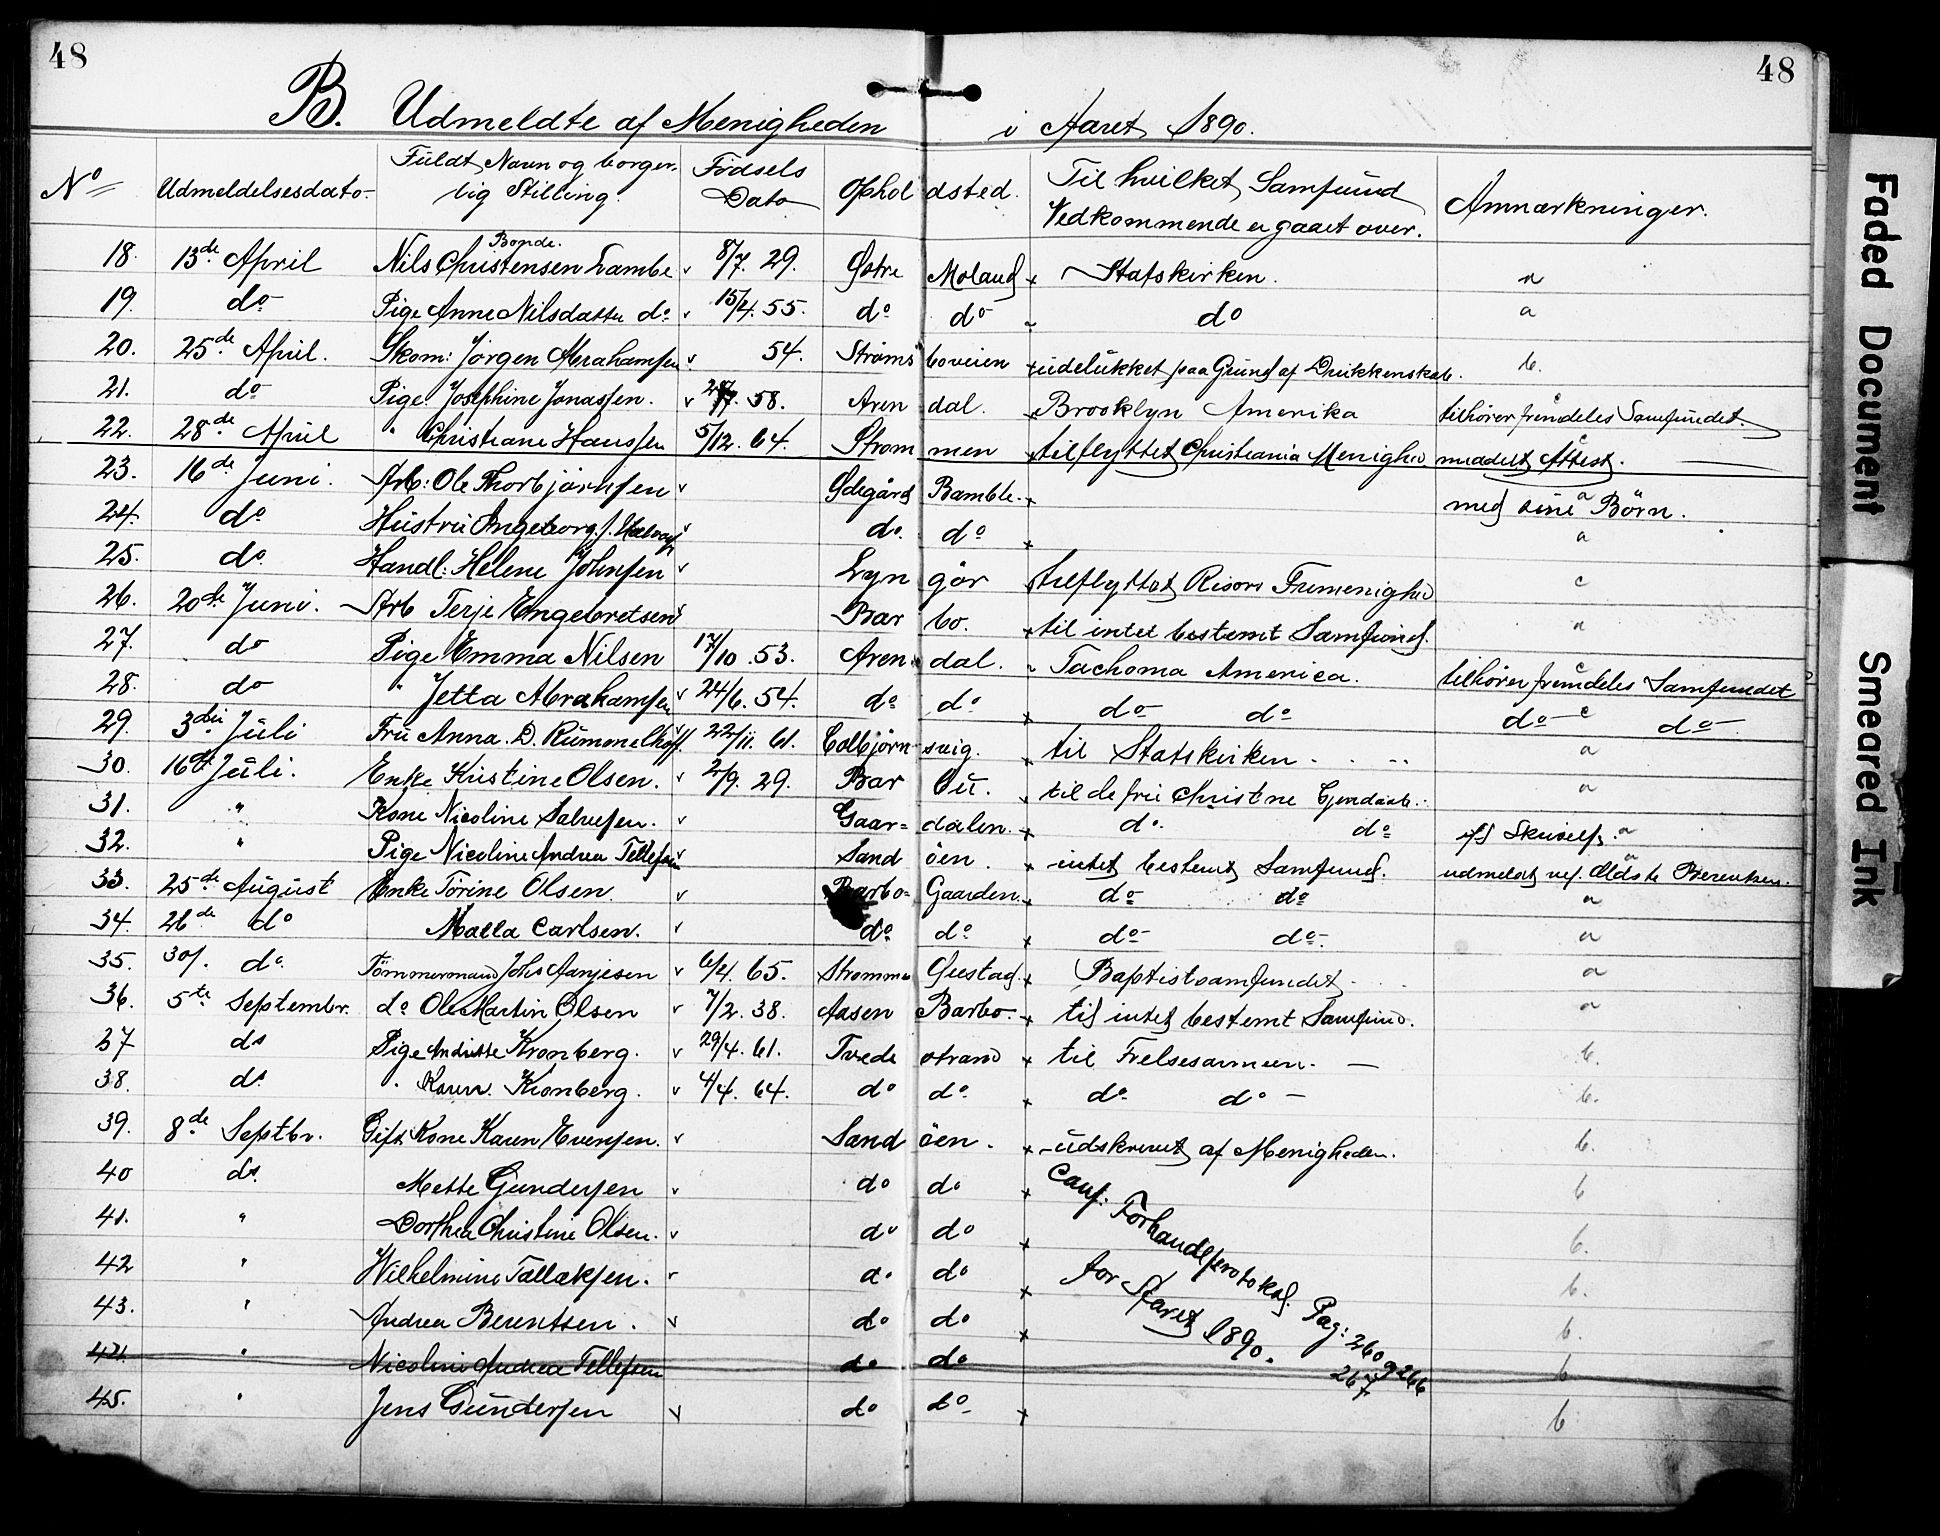 48
48
B. Udmeldte af Menigheden i Aaret 1890.
No Udmeldelsesdato Fuldt Navn og borgerlig Stilling. Fødsels Dato Opholdsted. Til hvilket Samfund Vedkommende er gaaet over. Anmærkninger.
18. 13de April Bonde. Nils Christensen Lambe 8/7. 29. Østre Moland Statskirken. a
19. do Pige Anne Nilsdatter do 15/4. 55. do do do a
20. 25de April. Skom: Jørgen Abrahamsen 54. Strømsboveien udelukket paa Grund af Drikkenskab. b.
21. do Pige Josephine Jonassen. 58. Arendal. Brooklyn Amerika c tilhører fremdeles Samfundet.
22. 28de April " Christiane Hanssen 5/12. 64. Strømmen tilflyttet Christiania Menighed c meddelt Attest.
23. 16de Juni. Arb: Ole Thorbjørnsen Ødegård Bamble. a med sine Børn.
24. do Hustru Ingeborg f. do. do a
25. do. Handl: Helene Johnsen Lyngør tilflyttet Risørs Frimenighed c
26. 20de Juni. Arb Terje Engebretsen Barbo. til intet bestemt Samfund. a
27. do Pige Emma Nilsen 17/10. 53. Arendal. Tachoma America. c tilhører fremdeles Samfundet
28. do " Jetta Abrahamsen 24/6. 54. do do do do do c do
29. 3die Juli Fru Anna. D. Rummelhoff 22/11. 61. Colbjørnsvig. til Statskirken. a
30. 16de Juli. Enke Kristine Olsen. 2/9. 29. Barbu. til de frie Christne a
31. " Kone Nicoline Salvesen. Gaardalen. do. do a
32. " Pige Nicoline Andrea Tellefsen Sandøen. intet bestemt Samfund. a udmeldt ved Ældste Berentsen.
33. 25de August Enke Torine Olsen. Barbo-Gaarden. do do a
34. 26de do Malla Carlsen. do do do do. a
35. 30/. do. Tømmermand Johs Aanjesen 6/4. 65. Strømmen Baptistsamfundet. a
36. 5te Septembr. do Ole Martin Olsen 7/2. 38. Aasen Barbo. til intet bestemt Samfund. a
37 do Pige Andrette Kronberg. 29/4. 61. Tvedestrand til Frelsesarmeen. b.
38. do. " Karen Kronberg. 4/4. 64. do do. do. do b.
39. 8de Septbr. Gift Kone Karen Evensen. Sandøen. udskrevet af Menigheden. b.
40 do. Mette Gundersen do do b
41. " Dorthea Christine Olsen. do do b.
42 " Wilhelmine Tallaksen. do do b.
43. " Andrea Berentsen. do do b.
44. " Nicoline Andrea Tellefsen do do b
45. " Jens Gundersen do do b
Conf: Forhandlsprotokol. Pag: 260 og 266
for Aaret 1890. 267
Faded Document
Smeared Ink